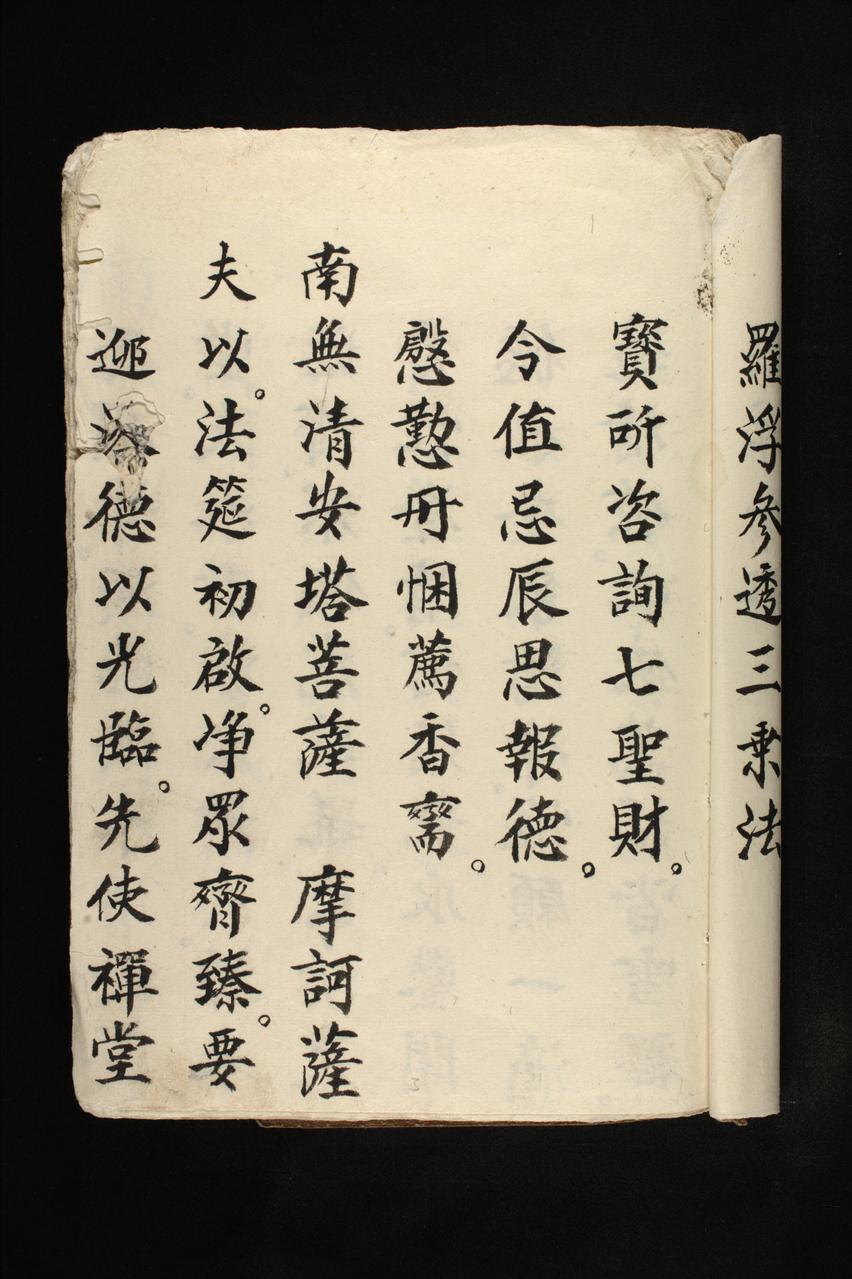 羅浮參透三乘法
寳所咨詢七聖財。
今值忌辰思報德。
慇懃冊悃薦香齋。
南無清安塔菩薩 摩訶薩
夫以。法筵初啟。净眾齊臻。要
德以光臨。先使禪堂